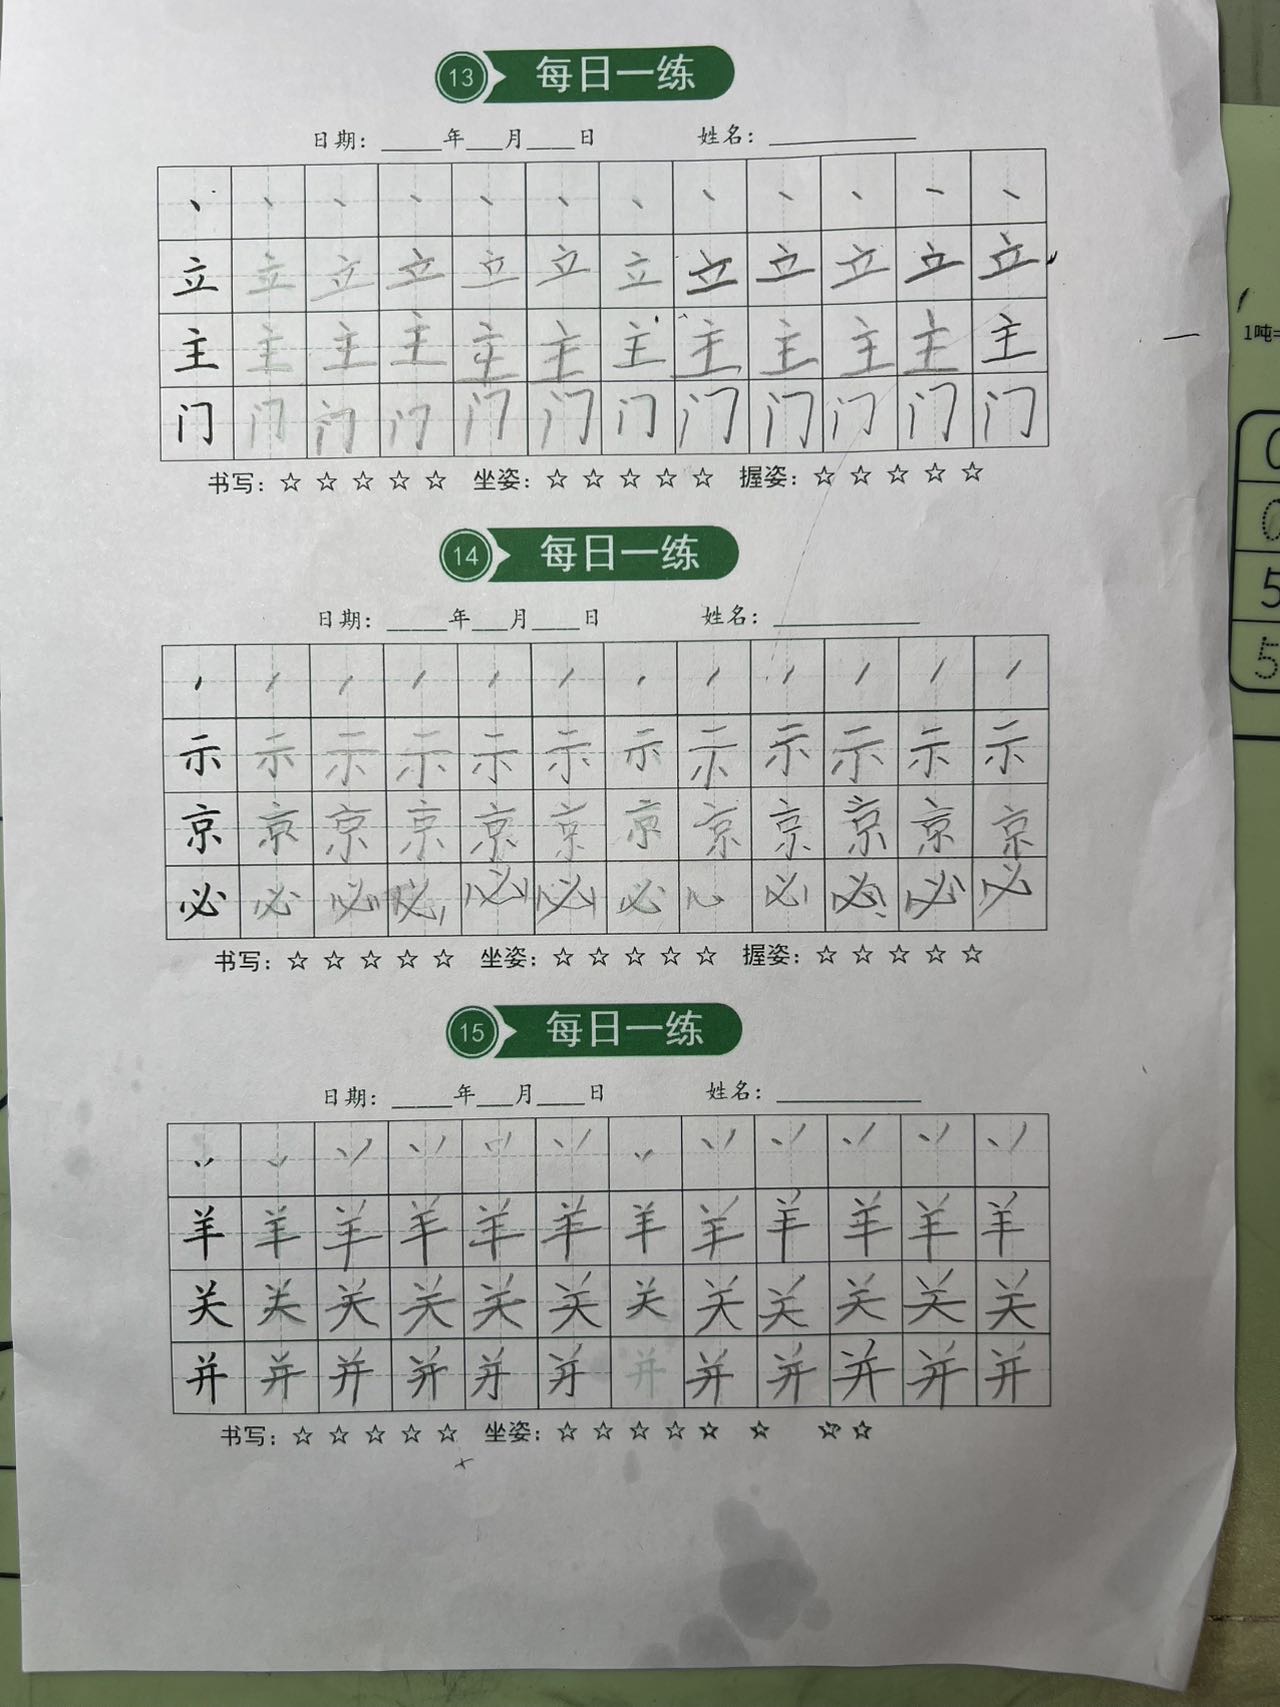 13 每日一练
日期： 年 月 日 姓名：
丶 丶 丶 丶 丶 丶 丶 丶 丶 丶 丶 丶
立 立 立 立 立 立 立 立 立 立 立 立
主 主 主 主 主 主 主 主 主 主 主 主
门 门 门 门 门 门 门 门 门 门 门 门
书写：☆ ☆ ☆ ☆ ☆ 坐姿：☆ ☆ ☆ ☆ ☆ 握姿：☆ ☆ ☆ ☆ ☆
14 每日一练
日期： 年 月 日 姓名：
示 示 示 示 示 示 示 示 示 示 示 示
京 京 京 京 京 京 京 京 京 京 京 京
必 必 必 必 必 必 必 心 必 必 必 必
书写：☆ ☆ ☆ ☆ ☆ 坐姿：☆ ☆ ☆ ☆ ☆ 握姿：☆ ☆ ☆ ☆ ☆
15 每日一练
日期： 年 月 日 姓名：
羊 羊 羊 羊 羊 羊 羊 羊 羊 羊 羊 羊
关 关 关 关 关 关 关 关 关 关 关 关
并 并 并 并 并 并 并 并 并 并 并 并
书写：☆ ☆ ☆ ☆ ☆ 坐姿：☆ ☆ ☆ ☆ ☆ ☆ ☆ ☆
1吨=
0
0
5
5